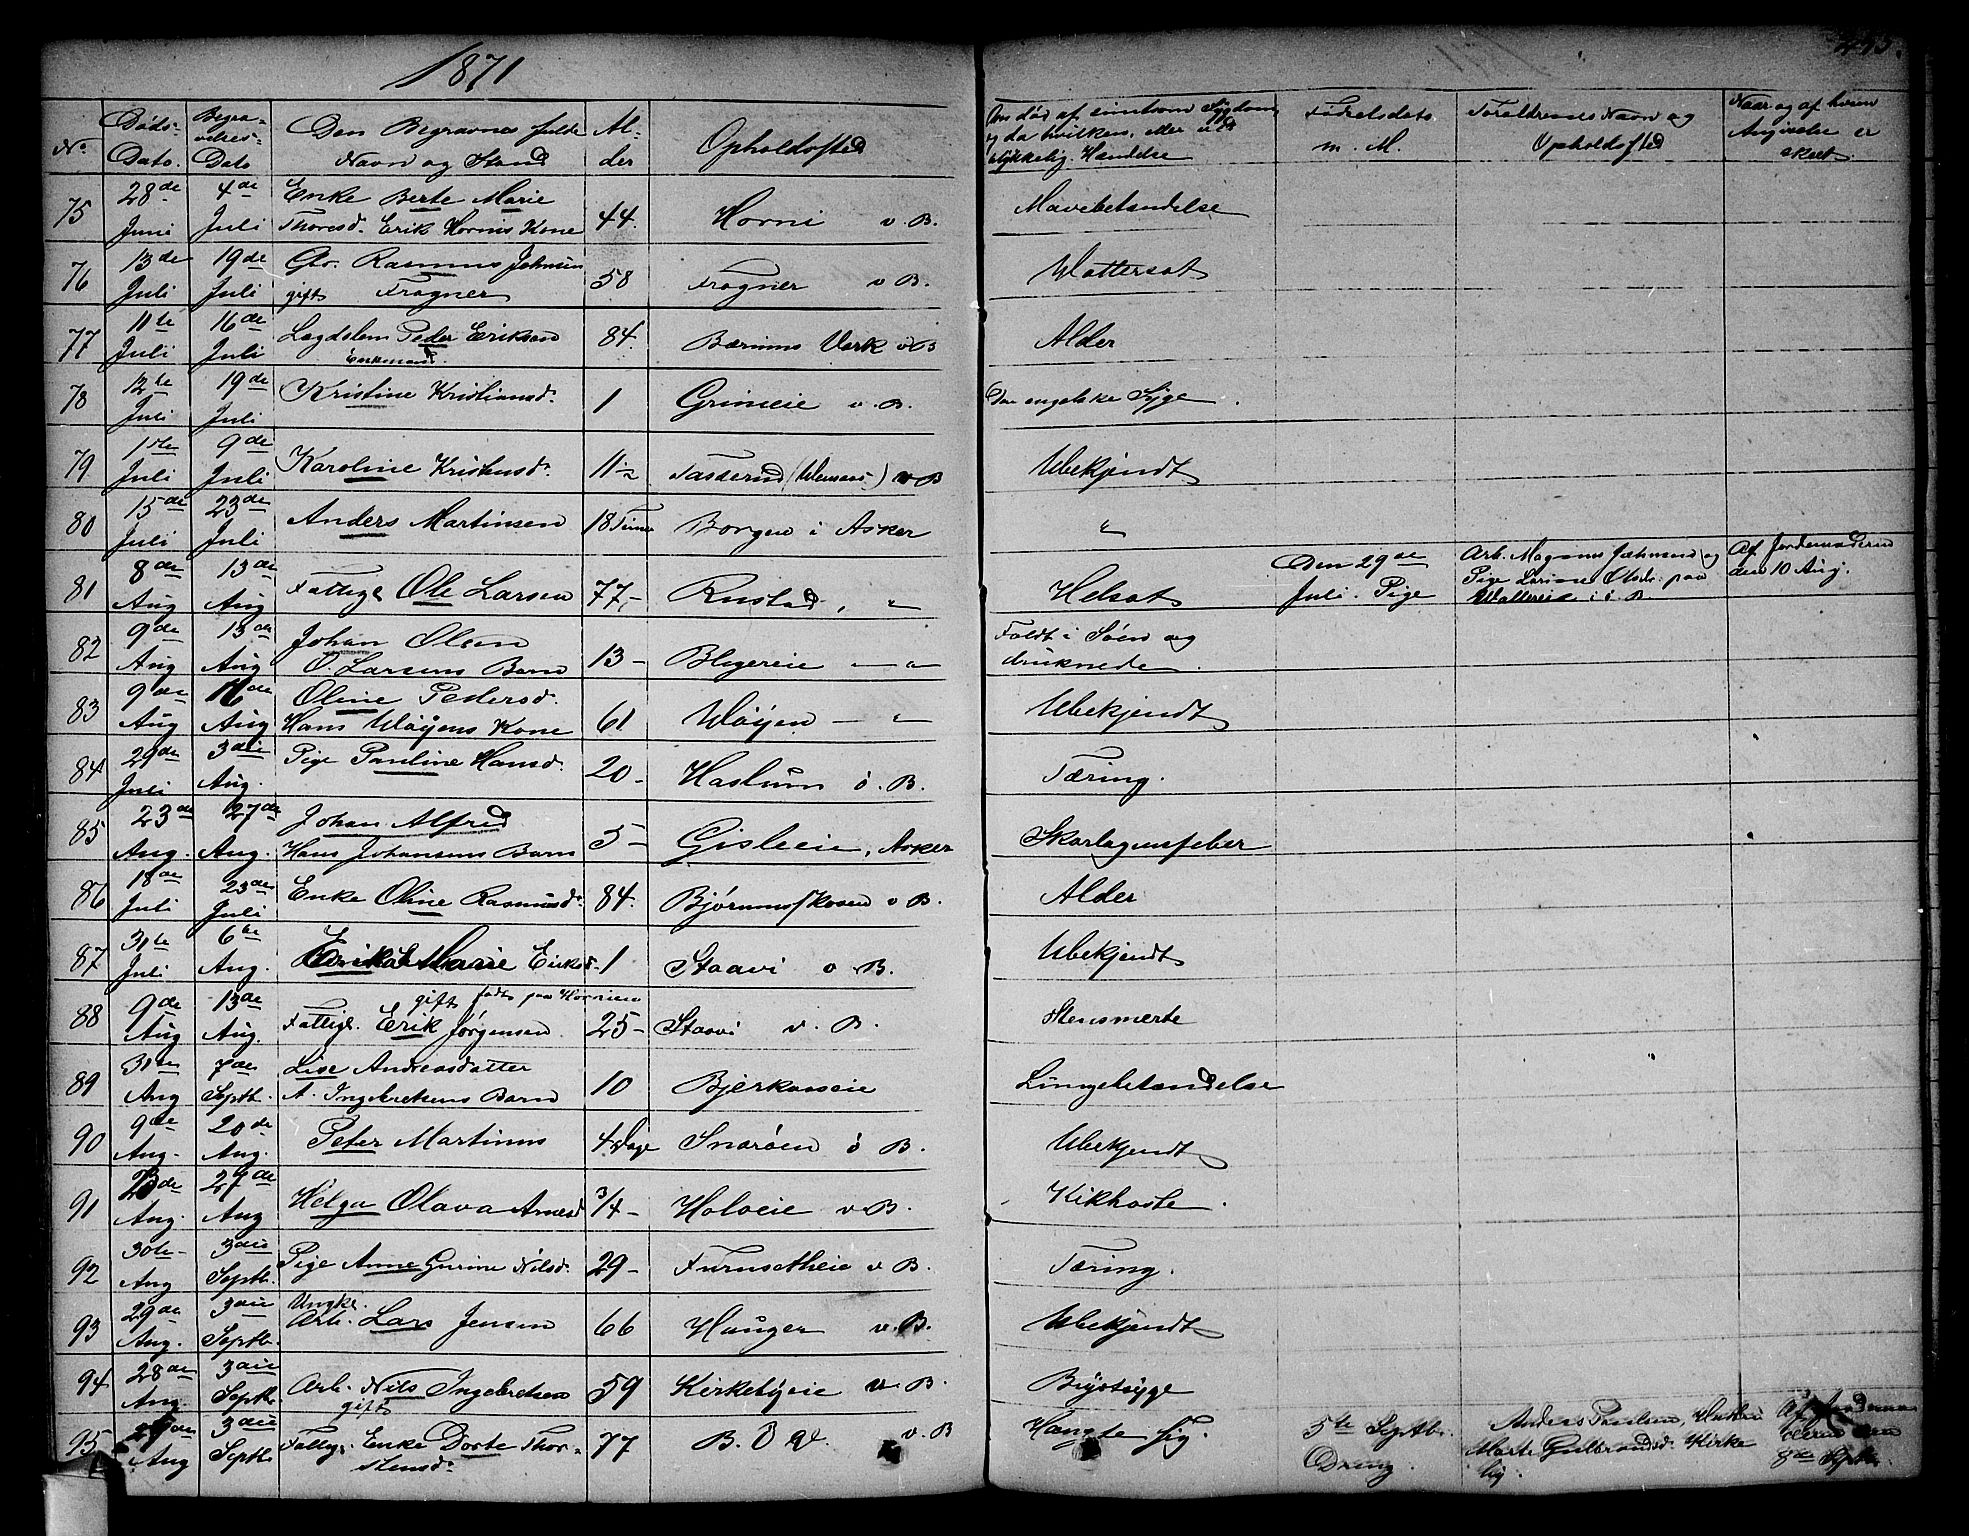 1871
No. Døds- Dato. Begra- velses- Dato Den Begravnes fulde Navn og Stand Al- der Opholdssted Om død af simtsom Sygdom, og da hvilken, eller ved ulykkelig Hændelse Fødselsdato m. M. Forældrenes Navn og Opholdssted Naar og af hvem Angivelse er skeet.
75 28de Juni 4de Juli Enke Berte Marie Thoresd. Erik Hornis Kone 44. Horni v B. Mavebetændelse
76 13de Juli 19de Juli Gr. Rasmus Johnsen gift Frogner 58 Frogner v B. Vattersot
77 11te Juli 16de Juli Lægdslem Peder Eriksen Enkemand 84. Bærums Værk v B Alder
78 12te Juli 19de Juli Kristine Kristiansd. 1 Grineeie v. B. Den engelske Syge.
79 1ste Juli 9de Juli Karoline Kristensd. Tanderud v B Ubekjendt
80 15de Juli 23de Juli Anders Martinsen 18 Timer Borgen i Asker "
81 8de Aug 13de Aug Fattigl. Ole Larsen 77 - Rustad, " Helsot Den 29de Juli. Pige Arb. Magnus Johnsen og Pige Larine Olsdr. paa i ö. B. Af Jordemoderen den 10 Aug.
82 9de Aug 13de Aug Johan Olsen O. Larsens Barn 13 - — " Faldt i Søen og druknede.
83 9de Aug 16de Aug Oline Pedersd. Hans Wøyens Kone 61 Wøyen — " Ubekjendt
84 29de Juli 3die Aug. Pige Pauline Hansd. 20 - Haslum ö. B. Tæring.
85 23de Aug. 27de Aug. Johan Alfred Hans Johansens Barn 5 - Gisleeie, Asker Skarlagensfeber
86 18de Juli 23de Juli Enke Oline Rasmusd. 84. Bjørumskosen v B. Alder
87 31te Juli 6te Aug. Marie Eriksd. 1 Staavi v B. Ubekjendt
88 9de Aug 13de Aug. gift født paa Hornieie Fattigl. Erik Jørgensen. 25 - Staavi v. B. Stensmerte
89 31te Aug 7de Septb. Lise Andreasdatter A. Ingebretsens Barn 10 Bjerkaaseie Lungebetændelse
90 9de Aug. 20de Aug. Peter Martinus 4 Dage Snarøen ö B. Ubekjendt
91 23de Aug. 27de Aug Helga Olava Arnesd 3/4 - Holoeie v B. Kikhoste.
92 30te Aug 3die Septb. Pige Anne Gurine Nilsd. 29 - Furusetheie v B. Tæring.
93 29de Aug. 3die Septb. Ungk. Arb. Lars Jensen 66 Hauger v. B. Ubekjendt
94 28de Aug. 3die Septb. Arb. Nils Ingebretsen gift 59 Kirkebyeie v. B. Brystsyge
95 29de Aug 3die Septb. Fattigl. Enke Dorte Thor- stensd. 77 v. B Hængte sig. 5te Septb. Dreng. Anders Paulsen, Marte Gulbrandsd. Kirke Af Jordemo- deren den 8de Septb.